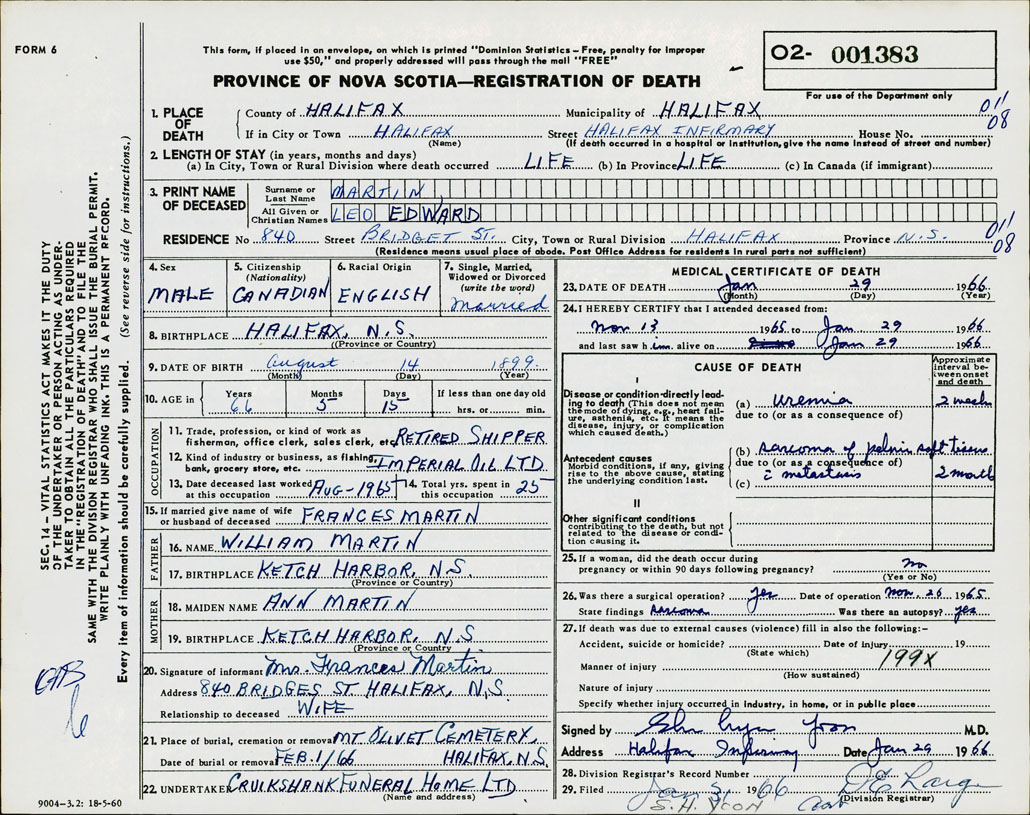 FORM 6
This form, if placed in an envelope, on which is printed "Dominion Statistics – Free, penalty for improper
use $50," and properly addressed will pass through the mail "FREE"
PROVINCE OF NOVA SCOTIA—REGISTRATION OF DEATH
O2- 001383
For use of the Department only
1. PLACE OF DEATH
County of HALIFAX Municipality of HALIFAX
011
08
If in City or Town HALIFAX Street HALIFAX INFIRMARY House No.
(Name) (If death occurred in a hospital or institution, give the name instead of street and number)
2. LENGTH OF STAY (in years, months and days)
(a) In City, Town or Rural Division where death occurred LIFE (b) In Province LIFE (c) In Canada (if immigrant)
3. PRINT NAME OF DECEASED
Surname or Last Name MARTIN
All Given or Christian Names LEO EDWARD
011
08
RESIDENCE No 840 Street BRIDGET ST. City, Town or Rural Division HALIFAX Province N.S.
(Residence means usual place of abode. Post Office Address for residents in rural parts not sufficient)
4. Sex MALE
5. Citizenship (Nationality) CANADIAN
6. Racial Origin ENGLISH
7. Single, Married, Widowed or Divorced (write the word) Married
8. BIRTHPLACE HALIFAX, N.S.
(Province or Country)
9. DATE OF BIRTH August 14 1899
(Month) (Day) (Year)
10. AGE in Years 66 Months 5 Days 15 If less than one day old hrs. or min.
OCCUPATION
11. Trade, profession, or kind of work as
fisherman, office clerk, sales clerk, etc. RETIRED SHIPPER
12. Kind of industry or business, as fishing,
bank, grocery store, etc. IMPERIAL OIL LTD
13. Date deceased last worked at this occupation AUG-1965 14. Total yrs. spent in this occupation 25
15. If married give name of wife or husband of deceased FRANCES MARTIN
FATHER
16. NAME WILLIAM MARTIN
17. BIRTHPLACE KETCH HARBOR, N.S.
(Province or Country)
MOTHER
18. MAIDEN NAME ANN MARTIN
19. BIRTHPLACE KETCH HARBOR, N.S
(Province or Country)
20. Signature of informant Mrs. Frances Martin
Address 840 BRIDGES ST HALIFAX, N.S
Relationship to deceased WIFE
21. Place of burial, cremation or removal MT OLIVET CEMETERY,
Date of burial or removal FEB. 1/66 HALIFAX, N.S.
22. UNDERTAKER CRUIKSHANK FUNERAL HOME LTD
(Name and address)
9004–3.2: 18-5-60
MEDICAL CERTIFICATE OF DEATH
23. DATE OF DEATH Jan 29 1966
(Month) (Day) (Year)
24. I HEREBY CERTIFY that I attended deceased from:
Nov 13 1965 to Jan 29 1966
and last saw h im alive on Jan 29 1966
CAUSE OF DEATH
Approximate interval between onset and death
I
Disease or condition directly leading to death (This does not mean
the mode of dying, e.g., heart failure, asthenia, etc. It means the
disease, injury, or complication which caused death.)
(a) Uremia 2 weeks
due to (or as a consequence of)
Antecedent causes
Morbid conditions, if any, giving rise to the above cause, stating the underlying condition last.
(b) sarcoma of pelvic soft tissues
due to (or as a consequence of)
(c) c̄ metastasis 2 months
II
Other significant conditions
contributing to the death, but not related to the disease or condition causing it.
25. If a woman, did the death occur during
pregnancy or within 90 days following pregnancy? no
(Yes or No)
26. Was there a surgical operation? yes Date of operation Nov. 26 1965
State findings sarcoma Was there an autopsy? yes
27. If death was due to external causes (violence) fill in also the following:–
Accident, suicide or homicide? Date of injury 19
(State which)
199X
Manner of injury
(How sustained)
Nature of injury
Specify whether injury occurred in industry, in home, or in public place
Signed by M.D.
Address Halifax Infirmary Date Jan 29 1966
28. Division Registrar's Record Number
29. Filed Jan 31 1966
(Division Registrar)
S. H. YOON
SEC. 14 – VITAL STATISTICS ACT MAKES IT THE DUTY
OF THE UNDERTAKER OR PERSON ACTING AS UNDER-
TAKER TO OBTAIN ALL THE PARTICULARS REQUIRED
IN THE "REGISTRATION OF DEATH" AND TO FILE THE
SAME WITH THE DIVISION REGISTRAR WHO SHALL ISSUE THE BURIAL PERMIT.
WRITE PLAINLY WITH UNFADING INK. THIS IS A PERMANENT RECORD.
Every item of information should be carefully supplied. (See reverse side for instructions.)